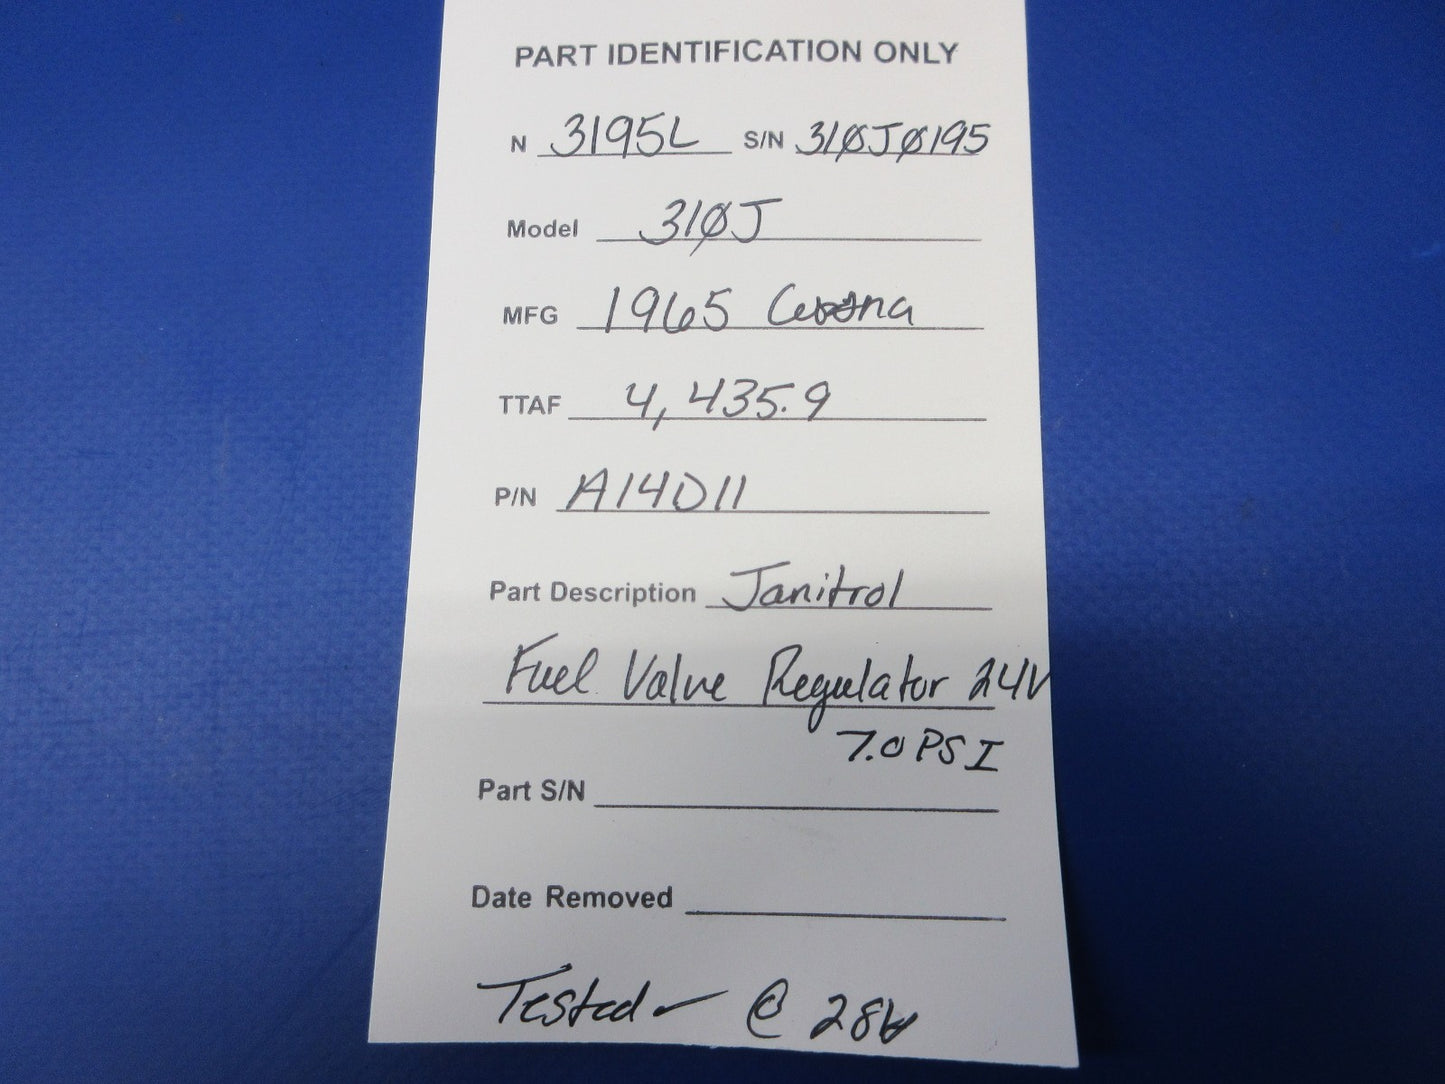 PART IDENTIFICATION ONLY
N 3195L S/N 310J0195
Model 310J
MFG 1965 Cessna
TTAF 4,435.9
P/N A14D11
Part Description Janitrol
Fuel Valve Regulator 24V
7.0 PSI
Part S/N
Date Removed
Tested @ 28V